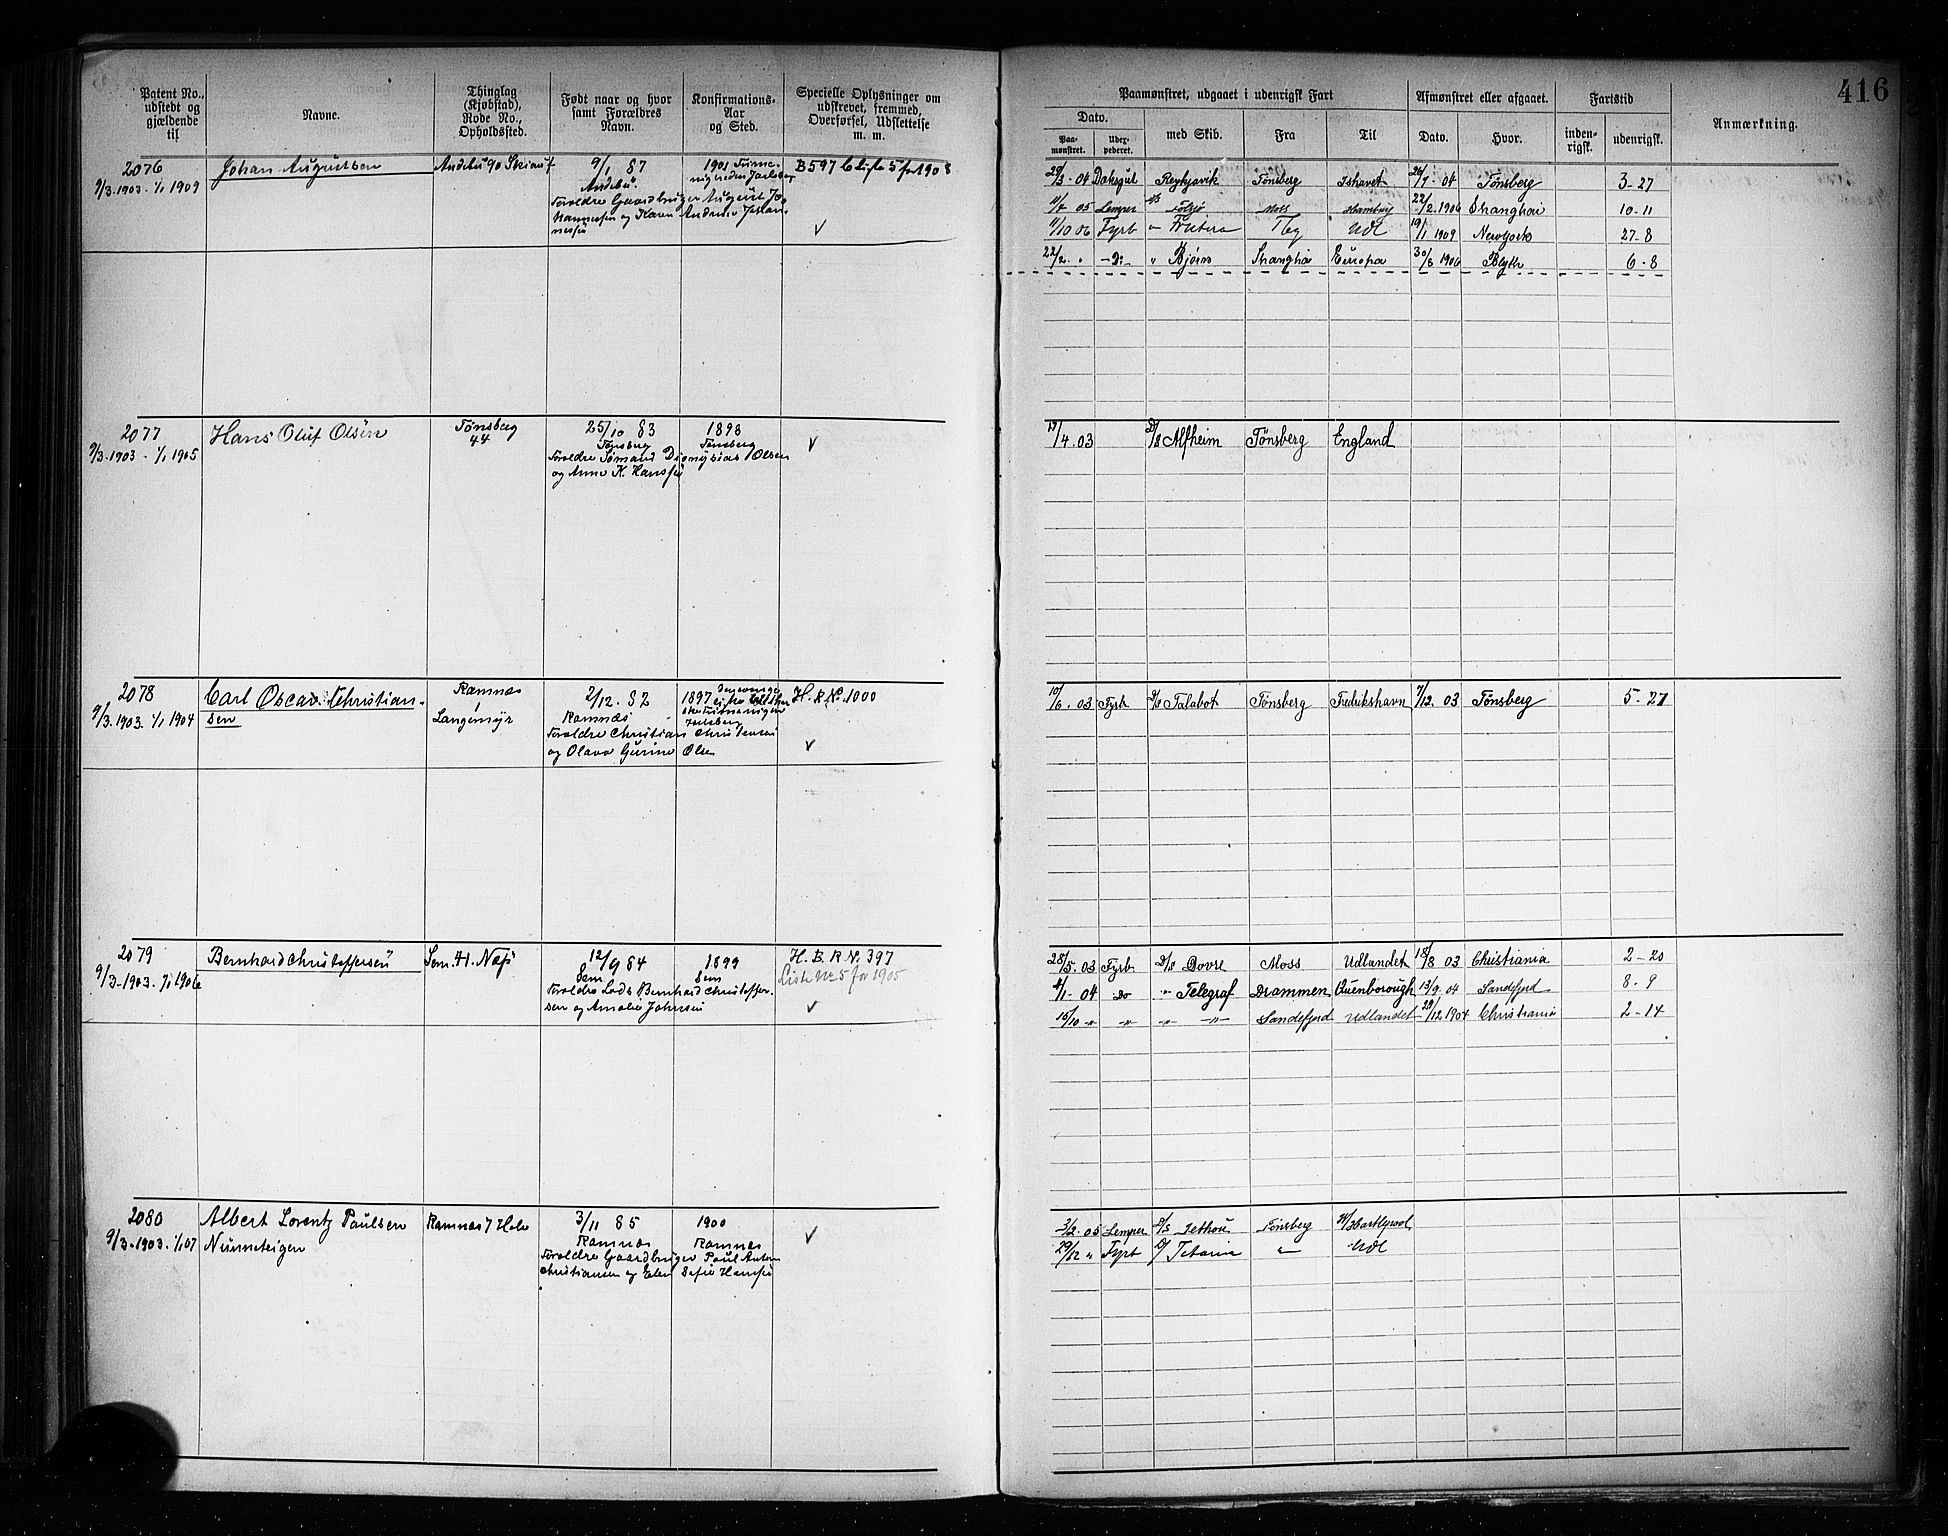 416
Patent No., udstedt og gjældende til
Navne.
Thinglag (Kjøbstad), Rode No., Opholdssted.
Født naar og hvor samt Forældres Navn.
Konfirmations-Aar og Sted.
Specielle Oplysninger om udskrevet, fremmed, Overførsel, Udslettelse m. m.
Paamønstret, udgaaet i udenrigsk Fart
Dato.
Paamønstret.
med Skib.
Fra
Til
Afmønstret eller afgaaet.
Dato.
Hvor.
Fartstid
indenrigsk.
udenrigsk.
Anmærkning.
2076
9/3-1903-1/1 1909
Johan Augustsen
Andebu 90
9/1 87
Andebu
Forældre Gaardbruger August Johannesen og Karen Andrine
1901
B 597 b Liste 5 for 1908
29/3-04 Reykjavik Tønsberg Ishavet 26/9-04 Tønsberg 3-27
11/7 05 Lemper Hamburg 22/2.1906 Shanghai 10-11
11/10 06 Fyrb Tbg Udl 19/1 1909 NewYork 27-8
22/2 " -D:- " Bjørn Shanghai Europa 30/8 1906 Blyth 6-8
2077
9/3-1903-1/1 1905
Hans Oluf Olsen
Tønsberg
44
25/10 83
Tønsberg
1898
Tønsberg
Forældre Sømand Dionysius Olsen
og Anne K. Hans
17/4.03 Alfheim Tønsberg England
2078
9/3-1903-1/1 1904
Carl Oscar Christiansen
Ramnæs
Langemyr
2/12.82
Ramnæs
Forældre Christian Christensen
og Olava Gurine Olsen
1897
Jarlsberg
H.R.No.1000
10/6.03 Fyrb Talabot Tønsberg Fredrikshavn 7/12 03 Tønsberg 5-27
2079
9/3-1903-1/1 1906
Bernhard Christoffersen
Sem. 41.
12/9 84
Sem
1899
Sem
Forældre Lods Bernhard Christoffersen og Amalie Johnsen
H.B.R No. 397
Liste No 5 for 1905
28/5.03 Fyrb Dovre Moss Udlandet 18/8 03 Christiania 2-20
04 Do " Telegraf Drammen Quenborough 13/9.04 Sandefjord 8-9
15/10 " " " " Sandefjord Udlandet 29/12 1904 Christiania 2-14
2080
9/3-1903-1/1 07
Albert Lorentz Paulsen
Nunneteigen
Ramnæs 7
3/11 85
Ramnæs
1900
Ramnæs
Forældre Gaardbruger Paul Anton
Christiansen og Elen Sofie
3/2 05 Lemper Jethou Tønsberg Hartlepool
29/12 " Fyrb " Udl